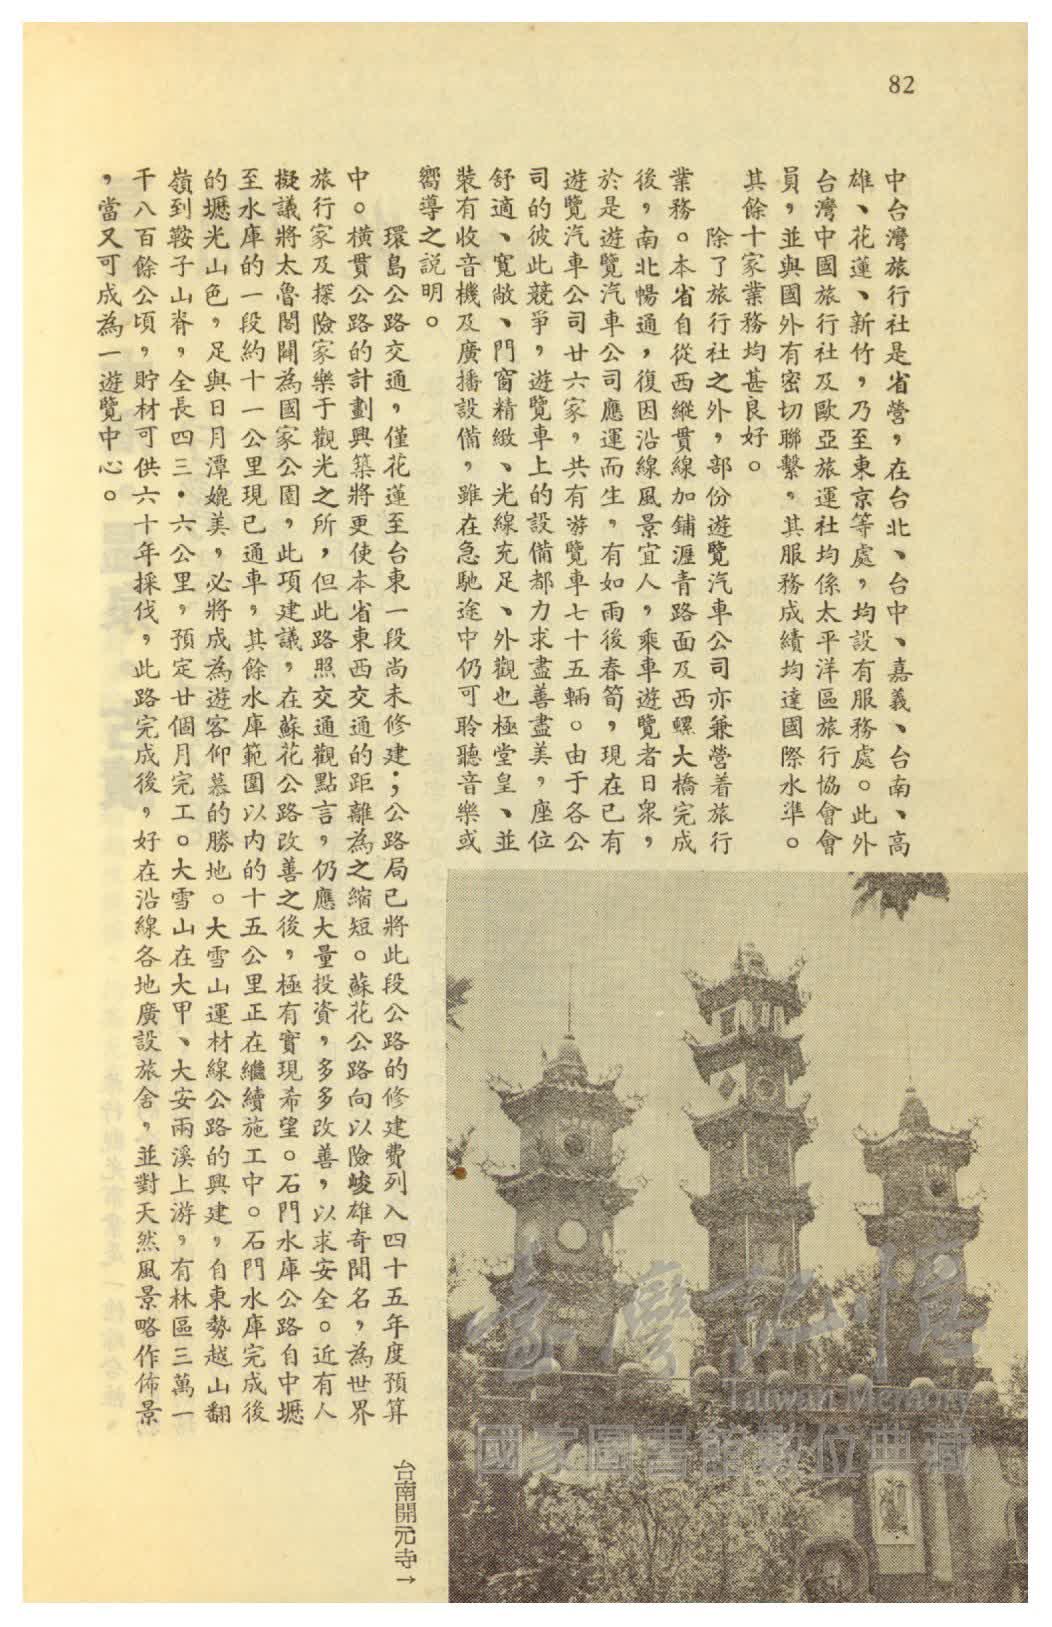 82
中台灣旅行社是省營，在台北、台中、嘉義、台南、高
雄、花蓮、新竹，乃至東京等處，均設有服務處。此外
台灣中國旅行社及歐亞旅運社均係太平洋區旅行協會會
員，並與國外有密切聯繫，其服務成績均達國際水準。
其餘十家業務均甚良好。
除了旅行社之外，部份遊覽汽車公司亦兼營着旅行
業務。本省自從西縱貫線加鋪瀝青路面及西螺大橋完成
後，南北暢通，復因沿線風景宜人，乘車遊覽者日衆，
於是遊覽汽車公司應運而生，有如雨後春筍，現在已有
遊覽汽車公司廿六家，共有游覽車七十五輛。由于各公
司的彼此競爭，遊覽車上的設備都力求盡善盡美，座位
舒適、寬敞、門窗精緻、光線充足、外觀也極堂皇、並
裝有收音機及廣播設備，雖在急馳途中仍可聆聽音樂或
嚮導之説明。
環島公路交通，僅花蓮至台東一段尚未修建；公路局已將此段公路的修建費列入四十五年度預算
中。橫貫公路的計劃興築將更使本省東西交通的距離為之縮短。蘇花公路向以險峻雄奇聞名，為世界
旅行家及探險家樂于觀光之所，但此路照交通觀點言，仍應大量投資，多多改善，以求安全。近有人
擬議將太魯閣闢為國家公園，此項建議，在蘇花公路改善之後，極有實現希望。石門水庫公路自中壢
至水庫的一段約十一公里現已通車，其餘水庫範圍以内的十五公里正在繼續施工中。石門水庫完成後
的壢光山色，足與日月潭媲美，必將成為遊客仰慕的勝地。大雪山運材線公路的興建，自東勢越山翻
嶺到鞍子山脊，全長四三・六公里，預定廿個月完工。大雪山在大甲、大安兩溪上游，有林區三萬一
千八百餘公頃，貯材可供六十年採伐，此路完成後，好在沿線各地廣設旅舍，並對天然風景略作佈景
，當又可成為一遊覽中心。
台南開元寺→
臺灣記憶
Taiwan Memory
國家圖書館數位典藏